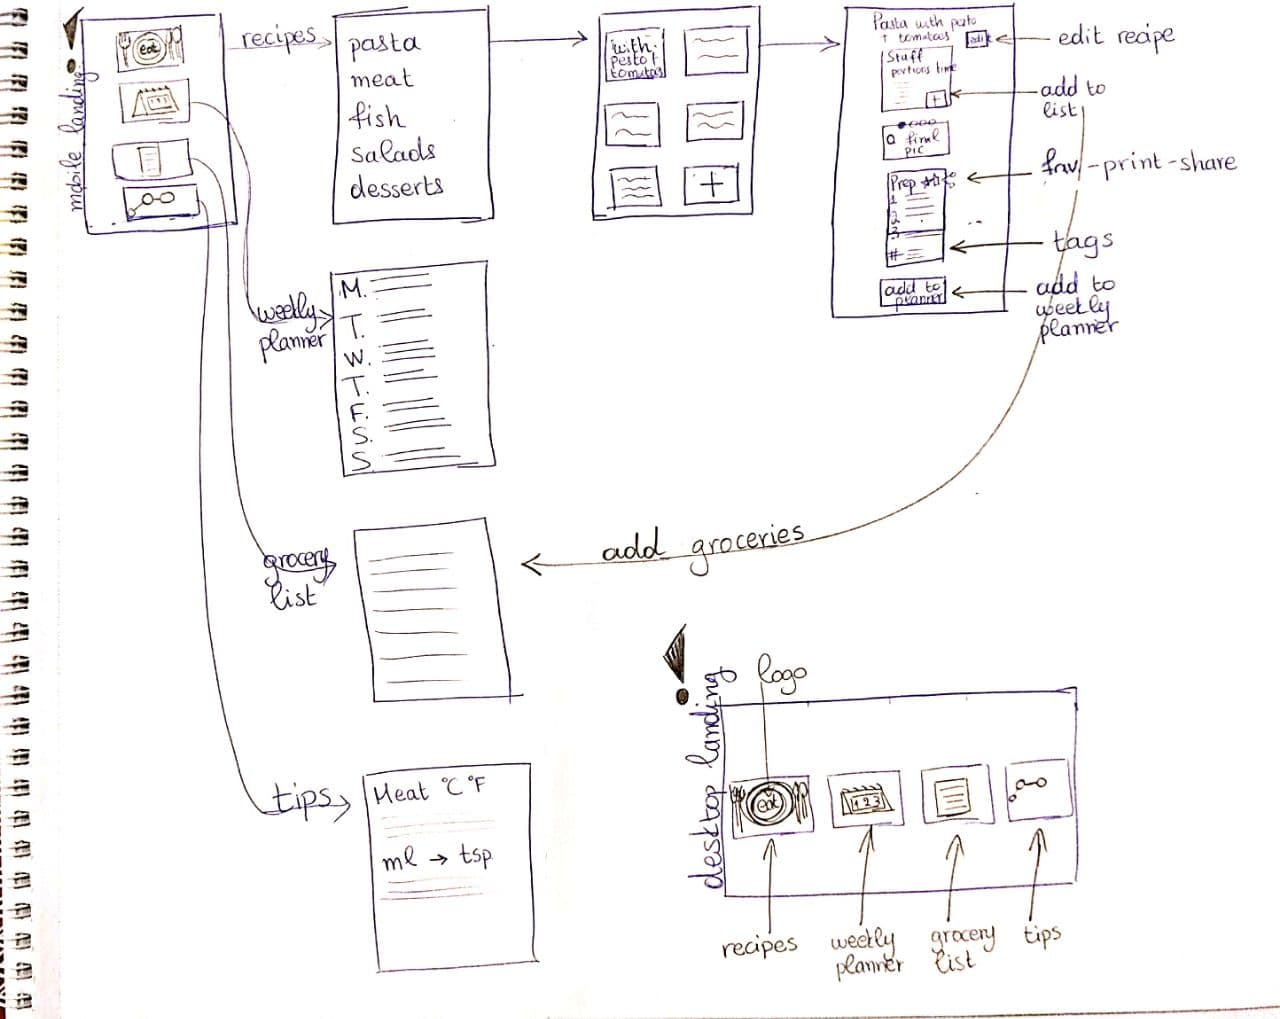 mobile landing
eat
recipes
pasta
meat
fish
salads
desserts
with
pesto +
tomatos
+
Pasta with pesto
+ tomatoes
edit
edit recipe
Stuff
portions time
+
add to
list
final
pic
Prep
1
2
3
#
fav-print-share
tags
add to
planner
add to
weekly
planner
weekly
planner
M.
T.
W.
T.
F.
S.
S
grocery
list
add groceries
tips
Meat °C °F
ml → tsp
desktop landing
logo
eat
123
recipes
weekly
planner
grocery
list
tips